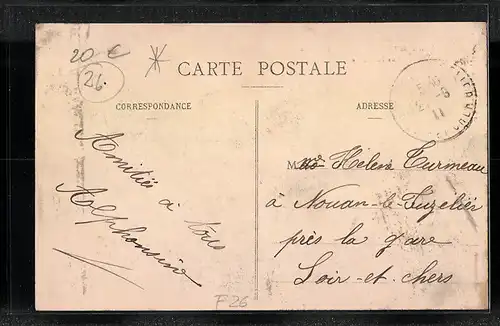 20 €
26.
CARTE POSTALE
CORRESPONDANCE
ADRESSE
Amitiés à tous
Alphonsine
M Hélène Turmeau
à Nouan-le-Fuzelier
près la gare
Loir-et-chers
F26
11